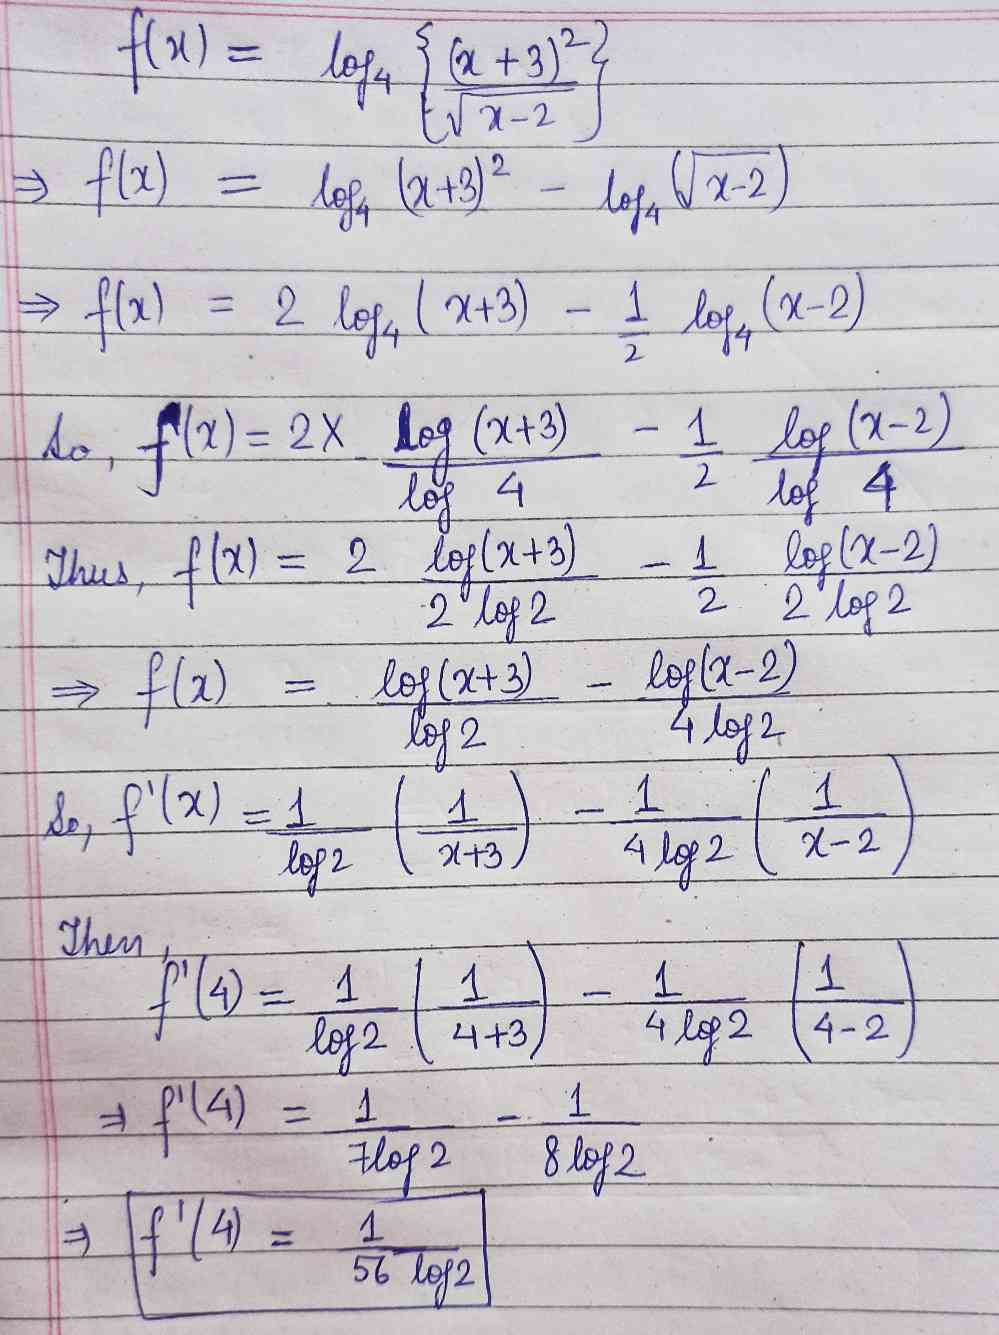 f(x) = log₄ {(x+3)²/√(x-2)}
⇒ f(x) = log₄ (x+3)² - log₄ (√(x-2))
⇒ f(x) = 2 log₄ (x+3) - 1/2 log₄ (x-2)
So, f(x) = 2 × log (x+3)/log 4 - 1/2 log (x-2)/log 4
Thus, f(x) = 2 log(x+3)/2 log 2 - 1/2 log(x-2)/2 log 2
⇒ f(x) = log(x+3)/log 2 - log(x-2)/4 log 2
So, f'(x) = 1/log 2 (1/x+3) - 1/4 log 2 (1/x-2)
Then,
f'(4) = 1/log 2 (1/4+3) - 1/4 log 2 (1/4-2)
⇒ f'(4) = 1/7 log 2 - 1/8 log 2
⇒ f'(4) = 1/56 log 2